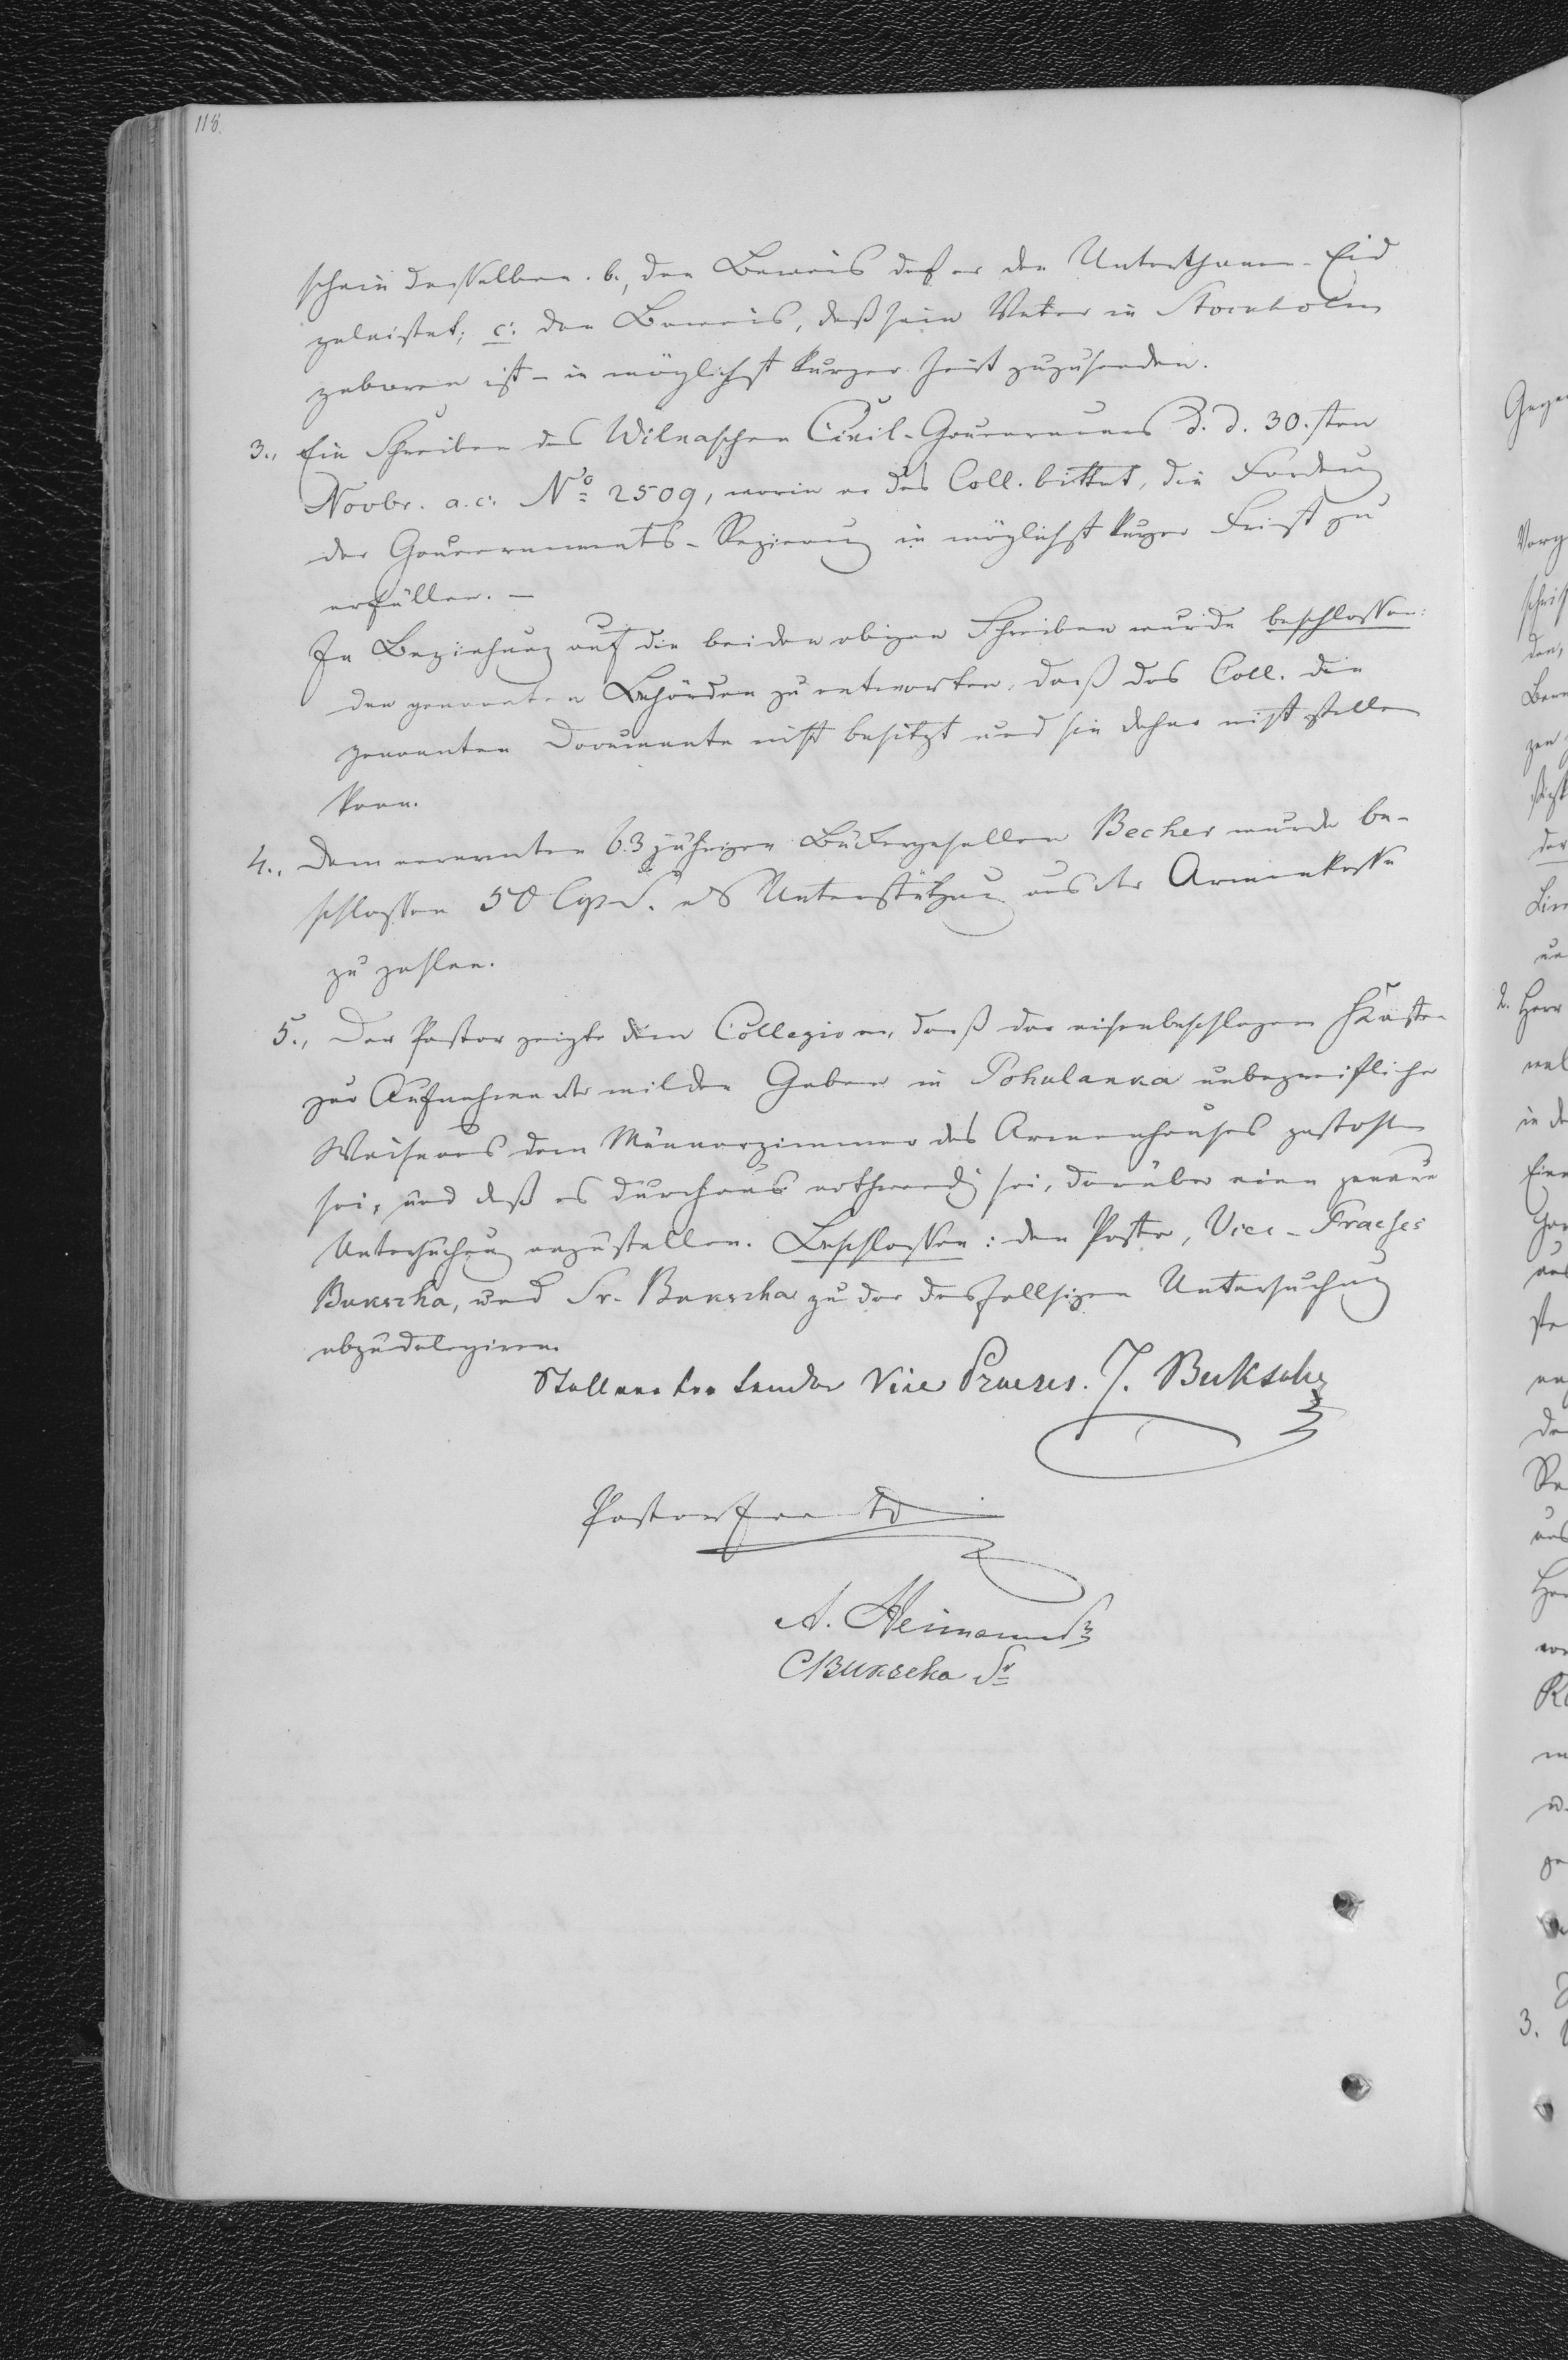 118.
schein desselben. b., den Beweis daß er den Unterthanen-Eid
geleistet; c: den Beweis, daß sein Vater in Stockholm
geboren ist – in möglichst kurzer Zeit zuzusenden.
3., Ein Schreiben des Wilnaschen Civil-Gouverneurs d. d. 30.sten
Novbr. a. c: No 2509, worin er das Coll. bittet, die Forderung
der Gouvernements-Regierung in möglichst kurzer Frist zu
erfüllen. –
In Beziehung auf die beiden obigen Schreiben wurde beschlossen:
den genannten Behörden zu antworten, daß das Coll. die
genannten Documente nicht besitzt und sie daher nicht stellen
kann.
4., Dem verarmten 63 jährigen Bäckergesellen Becher wurde be-
schlossen 50 Cop. S. als Unterstützung aus der Armenkasse
zu zahlen.
5., Der Pastor zeigte dem Collegio an, daß der eisenbeschlagene Kasten
zur Aufnahme der milden Gaben in Pohulanka unbegreiflicher
Weise aus dem Männerzimmer des Armenhauses gestohlen
sei, und daß es durchaus nothwendig sei, darüber eine genaue
Untersuchung anzustellen. Beschlossen: den Pastor, Vice-Praeses
Bukscha, und Sr. Bukscha zu der desfallsigen Untersuchung
abzudelegiren.
Stellvertretender Vice Praeses. J. Bukscha
Pastor
A. Heimann
Bukscha Sr